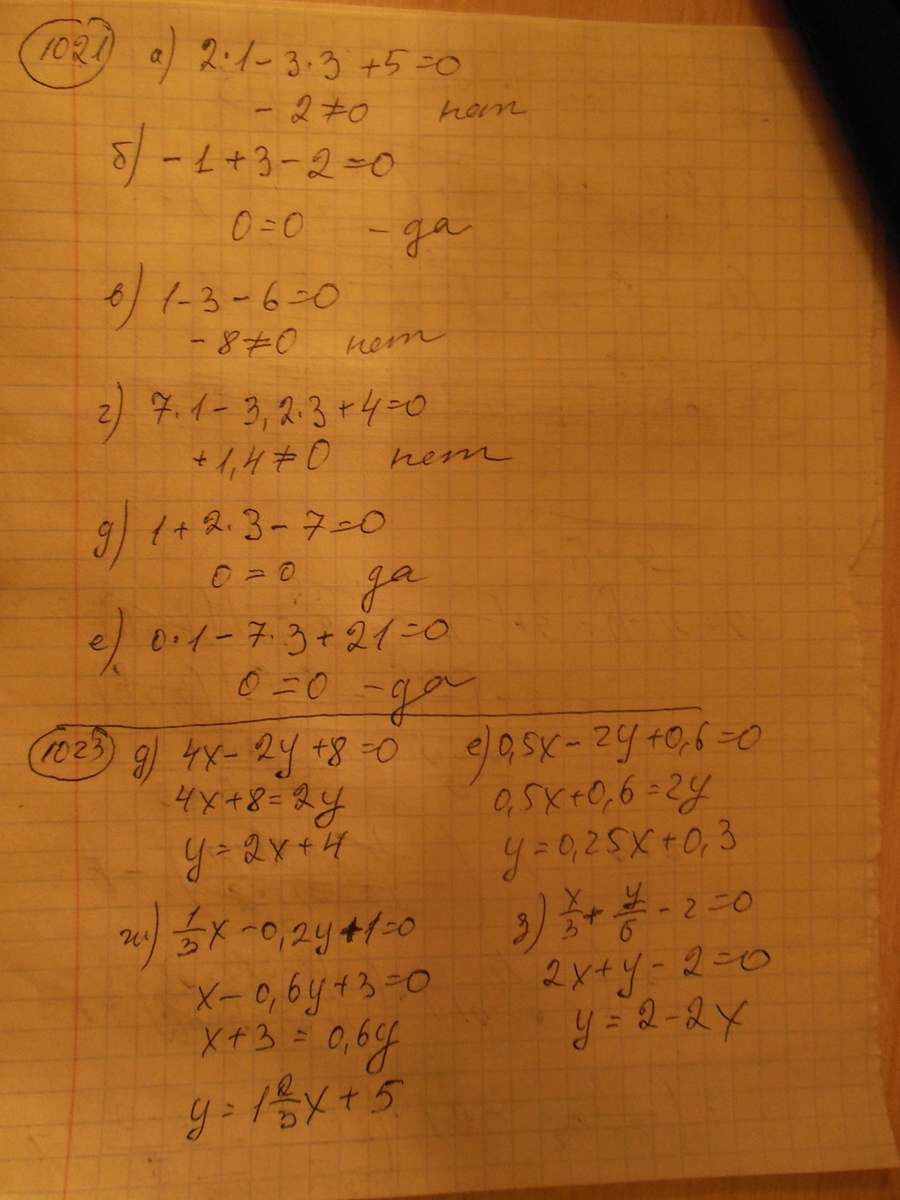 1021 а) 2·1-3·3+5=0
-2≠0 нет
б) -1+3-2=0
0=0 -да
в) 1-3-6=0
-8≠0 нет
г) 7·1-3,2·3+4=0
+1,4≠0 нет
д) 1+2·3-7=0
0=0 да
е) 0·1-7·3+21=0
0=0 -да
1023 д) 4x-2y+8=0
4x+8=2y
y=2x+4
е) 0,5x-2y+0,6=0
0,5x+0,6=2y
y=0,25x+0,3
ж) 1/3x-0,2y+1=0
x-0,6y+3=0
x+3=0,6y
y=1 2/3x+5
з) x/3+y/6-2=0
2x+y-2=0
y=2-2x